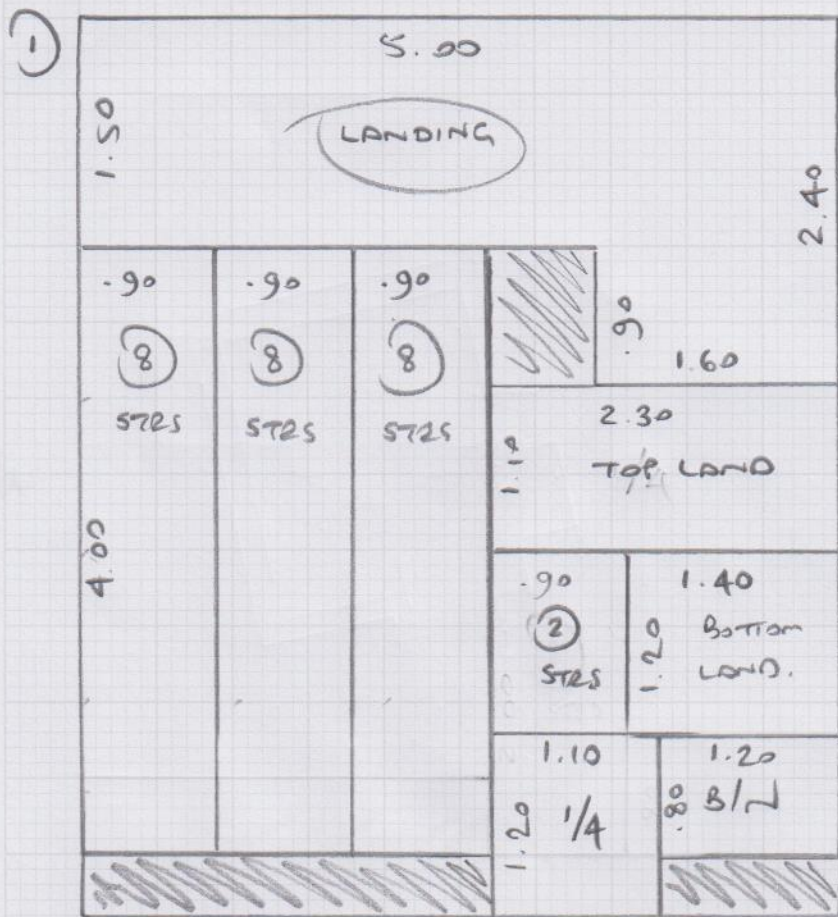 1
5.00
1.50
LANDING
2.40
.90 .90 .90
8 8 8
STRS STRS STRS
.90
1.60
2.30
1.10
TOP LAND
4.00
.90
1.40
2
1.20
BOTTOM
STRS
LAND.
1.10
1.20
1.20
1/4
.80